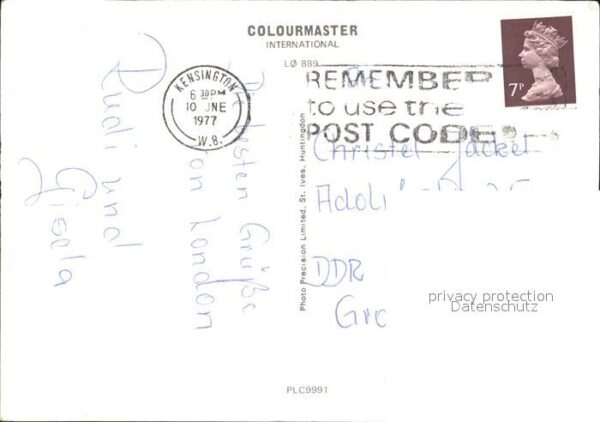 COLOURMASTER
INTERNATIONAL
LØ 889
KENSINGTON
6 30PM
10 JNE
1977
W.8.
REMEMBER
to use the
POST CODE
7P
Die besten Grüße
von London
Rudi und
Gisela
Photo Precision Limited, St. Ives, Huntingdon
Christel Jäckel
DDR
privacy protection
Datenschutz
PLC9991